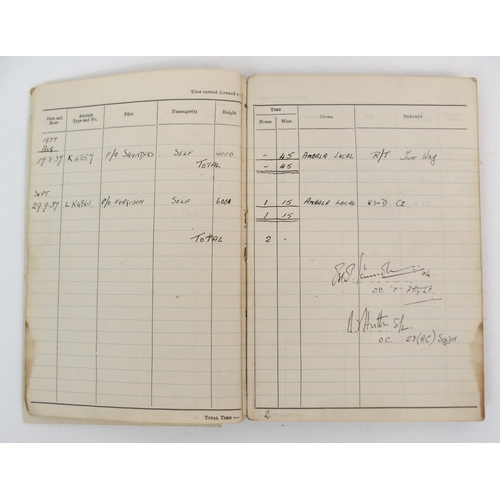 Time carried forward :—
Date and Hour Aircraft Type and No. Pilot Passenger(s) Height
Time Course Remarks
Hours Mins.
1937
Aug
17.8.37 K 4857 F/O Saunders Self 4000 - 45 Ambala Local R/T Two Way
Total - 45
Sept.
29.9.37 P/O Ferguson Self 6000 1 15 Ambala Local
1 15
Total 2 -
O.C. Flight
O.C. (A.C.) Sqdn.
Total Time :—
2